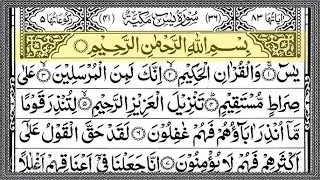 اٰیاتُهَا ٨٣ (٣٦) سُوْرَةُ یٰسٓ مَكِّیَّةٌ (٤١) رُكُوْعَاتُهَا ٥
بِسْمِ اللهِ الرَّحْمٰنِ الرَّحِیْمِ
یٰسٓ ۚ﴿١﴾ وَالْقُرْاٰنِ الْحَكِیْمِ ۙ﴿٢﴾ اِنَّكَ لَمِنَ الْمُرْسَلِیْنَ ۙ﴿٣﴾ عَلٰی
صِرَاطٍ مُّسْتَقِیْمٍ ؕ﴿٤﴾ تَنْزِیْلَ الْعَزِیْزِ الرَّحِیْمِ ۙ﴿٥﴾ لِتُنْذِرَ قَوْمًا
مَّاۤ اُنْذِرَ اٰبَآؤُهُمْ فَهُمْ غٰفِلُوْنَ ﴿٦﴾ لَقَدْ حَقَّ الْقَوْلُ عَلٰۤی
اَكْثَرِهِمْ فَهُمْ لَا یُؤْمِنُوْنَ ﴿٧﴾ اِنَّا جَعَلْنَا فِیْۤ اَعْنَاقِهِمْ اَغْلٰلًا